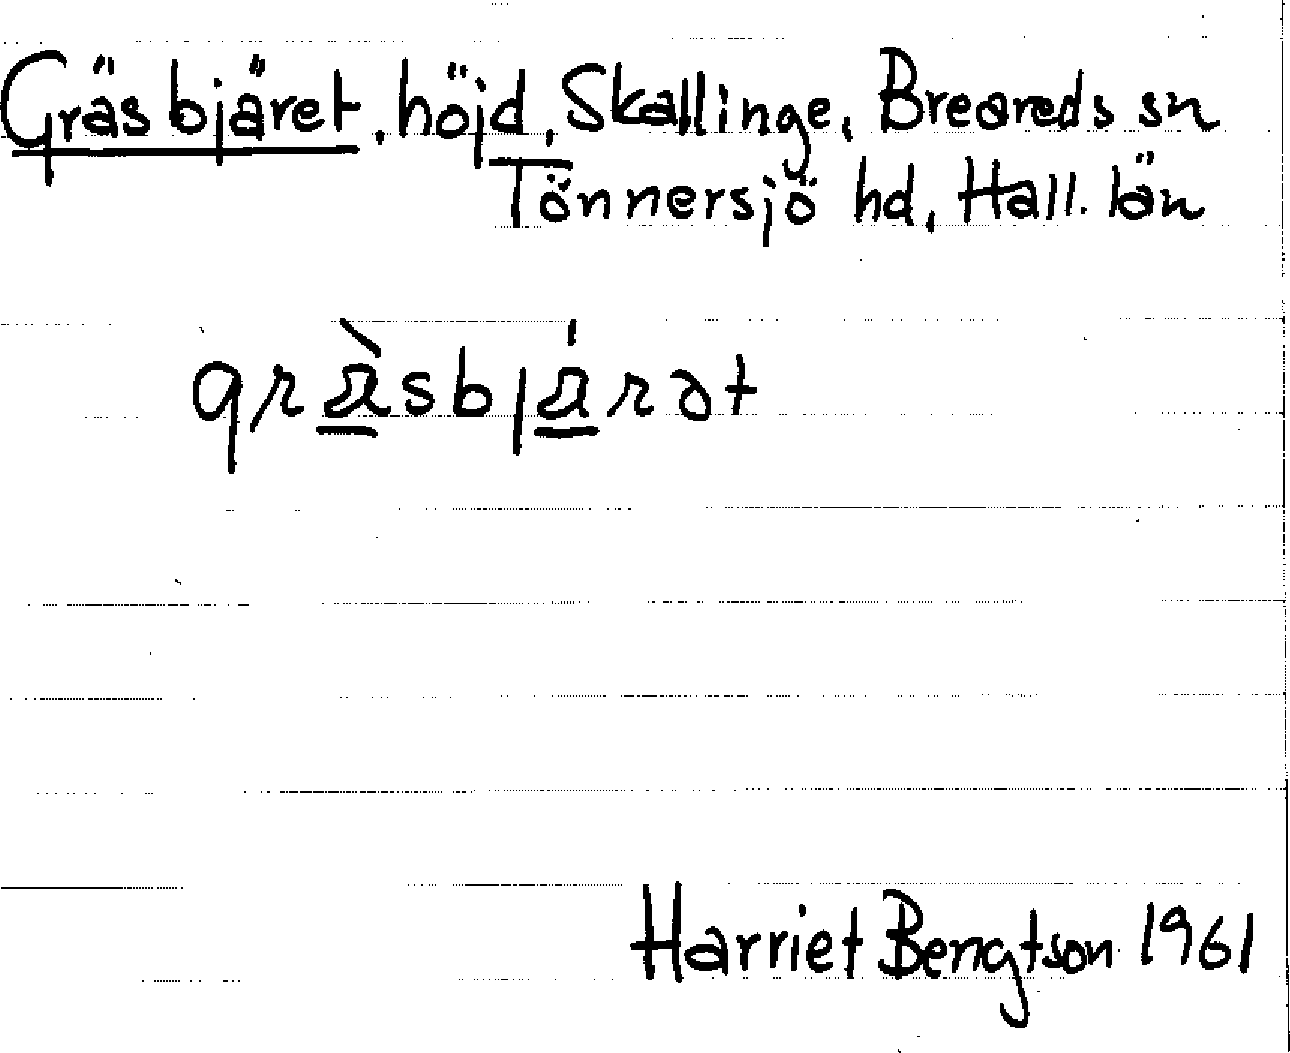 Gräsbjäret, höjd, Skallinge, Breareds sn
Tönnersjö hd, Hall. län
græ̠̀sbjǽ̠rət
Harriet Bengtson 1961